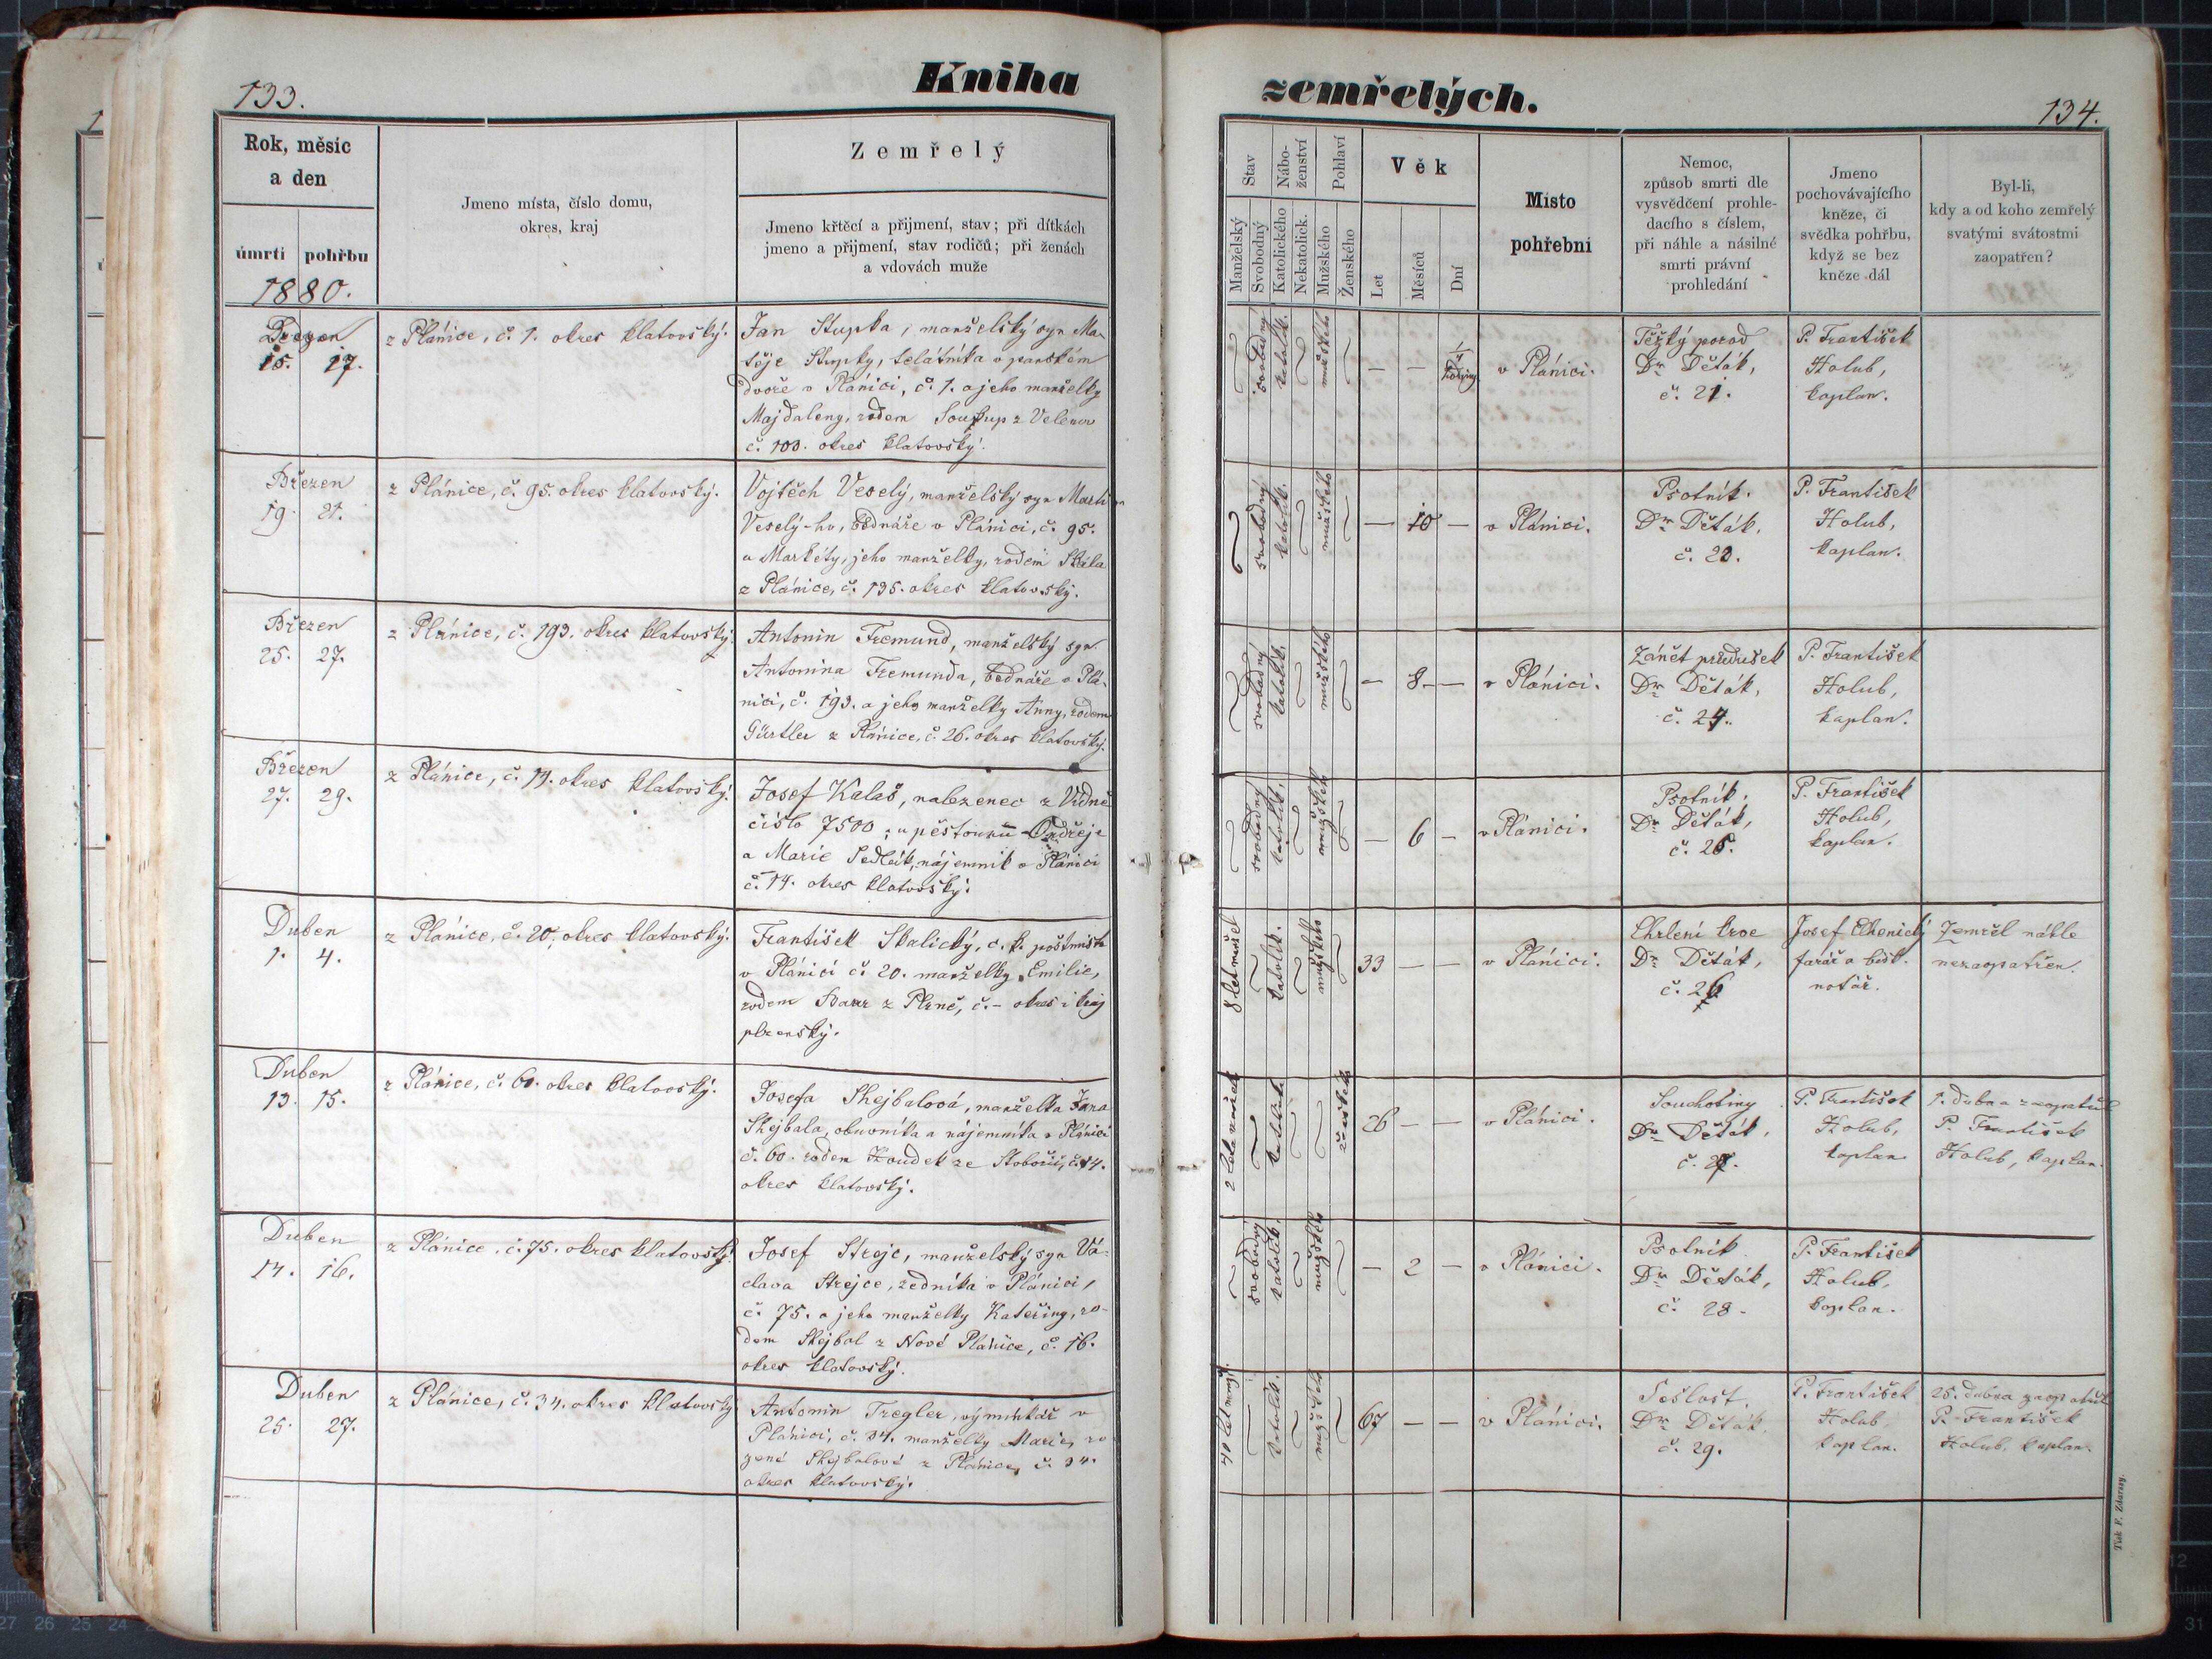 Kniha
zemřelých.
133.
134.
Rok, měsíc
a den
úmrtí pohřbu
1880.
Jmeno místa, číslo domu,
okres, kraj
Zemřelý
Jmeno křtěcí a přijmení, stav; při dítkách
jmeno a přijmení, stav rodičů; při ženách
a vdovách muže
Stav
Manželský
Svobodný
Nábo-
ženství
Katolického
Nekatolick.
Pohlaví
Mužského
Ženského
Věk
Let
Měsíců
Dní
Místo
pohřební
Nemoc,
způsob smrti dle
vysvědčení prohle-
dacího s číslem,
při náhle a násilné
smrti právní
prohledání
Jmeno
pochovávajícího
kněze, či
svědka pohřbu,
když se bez
kněze dál
Byl-li,
kdy a od koho zemřelý
svatými svátostmi
zaopatřen?
Březen
15. 17.
z Plánice, č. 1. okres klatovský.
Jan Stupka, manželský syn Ma-
těje Stupky, šelátníka v panském
dvoře v Plánici, č. 1. a jeho manželky
Majdaleny, rodem Soukup z Velenov
č. 100. okres klatovský.
svobodný
katolík.
mužského
— — 1/4 hodiny
v Plánici.
Těžký porod
Dr Děták,
č. 21.
P. František
Holub,
kaplan.
Březen
19. 21.
z Plánice, č. 95. okres klatovský.
Vojtěch Veselý, manželský syn Martina
Veselý-ho, bednáře v Plánici, č. 95.
a Markéty, jeho manželky, rodem Skála
z Plánice, č. 135. okres klatovský.
svobodný
katolík.
mužského
— 10 —
v Plánici.
Psotník.
Dr Děták,
č. 22.
P. František
Holub,
kaplan.
Březen
25. 27.
z Plánice, č. 193. okres klatovský.
Antonin Tremund, manželský syn
Antonina Tremunda, bednáře v Plá-
nici, č. 193. a jeho manželky Anny, rodem
Gürtler z Plánice, č. 26. okres klatovský.
svobodný
katolík.
mužského
— 8 —
v Plánici.
Zánět průdušek
Dr Děták,
č. 24.
P. František
Holub,
kaplan.
Březen
27. 29.
z Plánice, č. 14. okres klatovský.
Josef Kalaš, nalezenec z Vídně
číslo 7500; u pěstounů Ondřeje
a Marie Sedlák, nájemník v Plánici
č. 14. okres klatovský.
svobodný
katolík.
mužského
— 6 —
v Plánici.
Psotník,
Dr Děták,
č. 25.
P. František
Holub,
kaplan.
Duben
1. 4.
z Plánice, č. 20, okres klatovský.
František Skalický, c. k. poštmistr
v Plánici č. 20. manželky Emilie,
rodem z Plzně, č. - okres i kraj
plzenský.
8 let manžel
katolík.
mužského
33 — —
v Plánici.
Chrlení krve
Dr Děták,
č. 26
Josef Elhenický
farář a bisk.
notář.
Zemřel náhle
nezaopatřen.
Duben
13. 15.
z Plánice, č. 60. okres klatovský.
Josefa Shejbalová, manželka Jana
Shejbala, obuvníka a nájemníka v Plánici
č. 60. rodem Houdek ze Stobořic, č. 14.
okres klatovský.
katolík.
ženského
26 — —
v Plánici.
Souchotiny
Dr Děták,
č. 27.
P. František
Holub,
kaplan
1. dubna zaopatřil
P. František
Holub, kaplan.
Duben
14. 16.
z Plánice, č. 75. okres klatovský.
Josef Strejc, manželský syn Vá-
clava Strejce, zedníka v Plánici,
č. 75. a jeho manželky Kateřiny, ro-
dem Shejbal z Nové Plánice, č. 16.
okres klatovský.
svobodný
katolík.
mužského
— 2 —
v Plánici.
Psotník
Dr Děták,
č. 28.
P. František
Holub,
kaplan.
Duben
25. 27.
z Plánice, č. 34. okres klatovský
Antonin Tregler, výminkář v
Plánici, č. 34. manželky Marie, ro-
zené Shejbalové z Plánice, č. 34.
okres klatovský.
40 let
katolík.
mužského
67 — —
v Plánici.
Sešlost,
Dr Děták,
č. 29.
P. František
Holub,
kaplan.
25. dubna zaopatřil
P. František
Holub, kaplan.
Tisk F. Zdarsy.